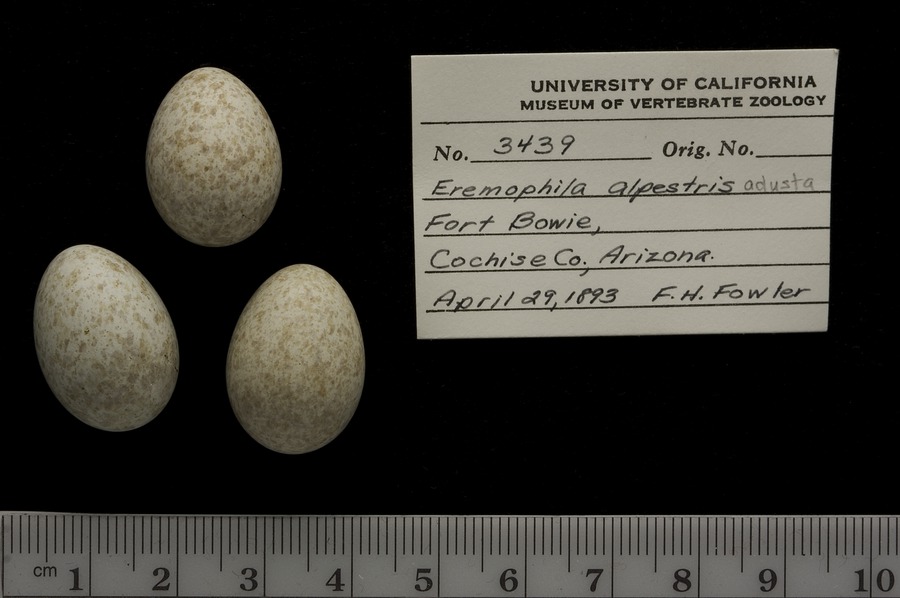 UNIVERSITY OF CALIFORNIA
MUSEUM OF VERTEBRATE ZOOLOGY
No. 3439 Orig. No.
Eremophila alpestris adusta
Fort Bowie,
Cochise Co., Arizona.
April 29, 1893 F.H. Fowler
cm 1 2 3 4 5 6 7 8 9 10